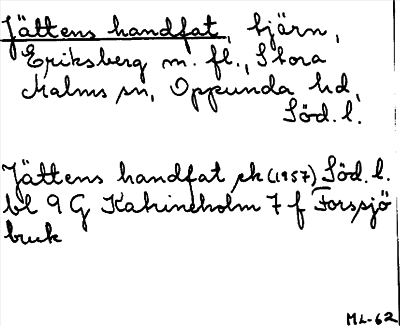 Jättens handfat, tjärn,
Eriksberg m. fl., Stora
Malms sn, Oppunda hd,
Söd. l.
Jättens handfat ek (1957) Söd. l.
bl 9 G Katrineholm 7 f Forssjö
bruk
ML-62